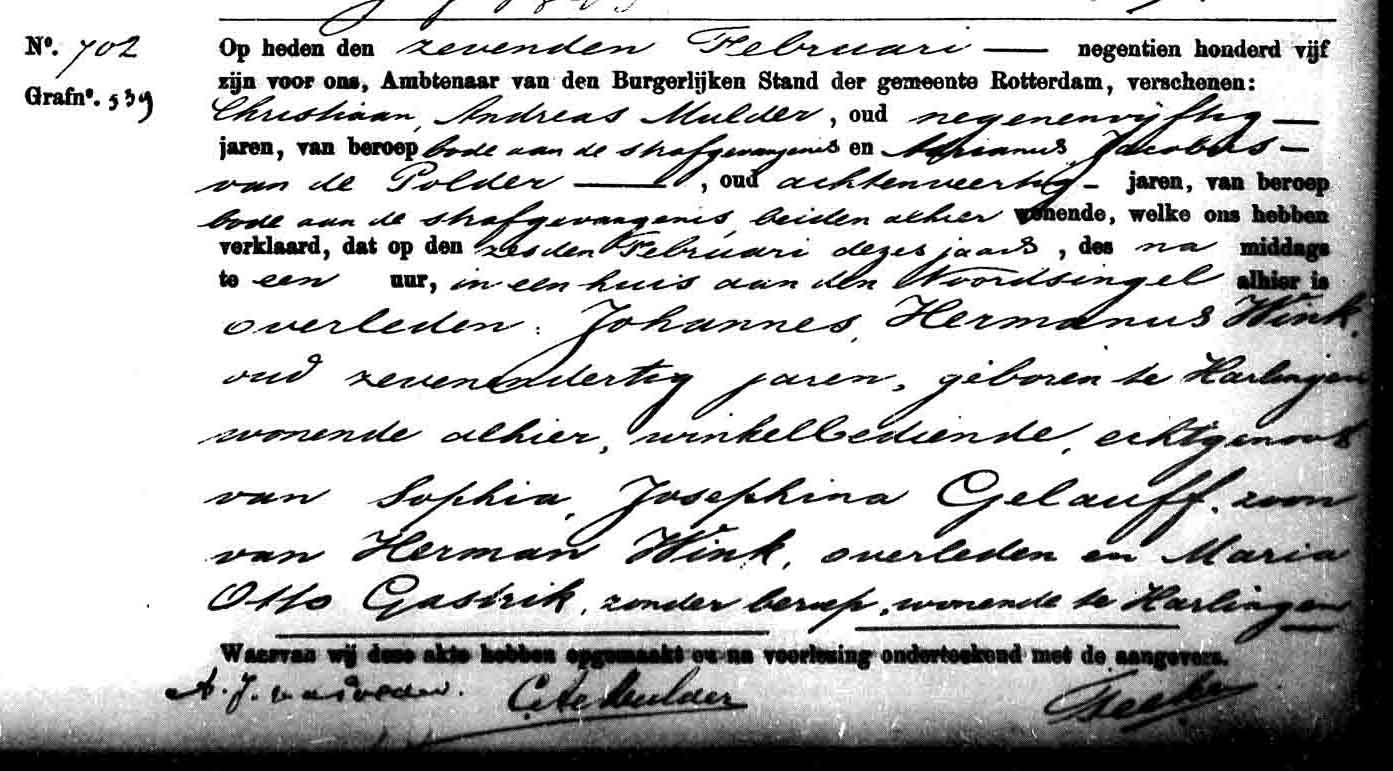 Nº. 702
Grafnº. 539
Op heden den zevenden Februari — negentien honderd vijf
zijn voor ons, Ambtenaar van den Burgerlijken Stand der gemeente Rotterdam, verschenen:
Christiaan, Andreas Mulder, oud negenenvijftig —
jaren, van beroep bode aan de strafgevangenis en Adrianus Jacobus —
van de Polder —, oud achtenveertig — jaren, van beroep
bode aan de strafgevangenis, beiden alhier wonende, welke ons hebben
verklaard, dat op den zesden Februari dezes jaars, des na middags
te een uur, in een huis aan den Noordsingel alhier is
overleden: Johannes, Hermanus Wink,
oud zevenendertig jaren, geboren te Harlingen
wonende alhier, winkelbediende, echtgenoot
van Sophia, Josephina Gelauff, zoon
van Herman Wink, overleden en Maria
Otto Gastrik, zonder beroep, wonende te Harlingen
Waarvan wij deze akte hebben opgemaakt en na voorlezing onderteekend met de aangevers.
A. J. v d Polder. C. A. Mulder